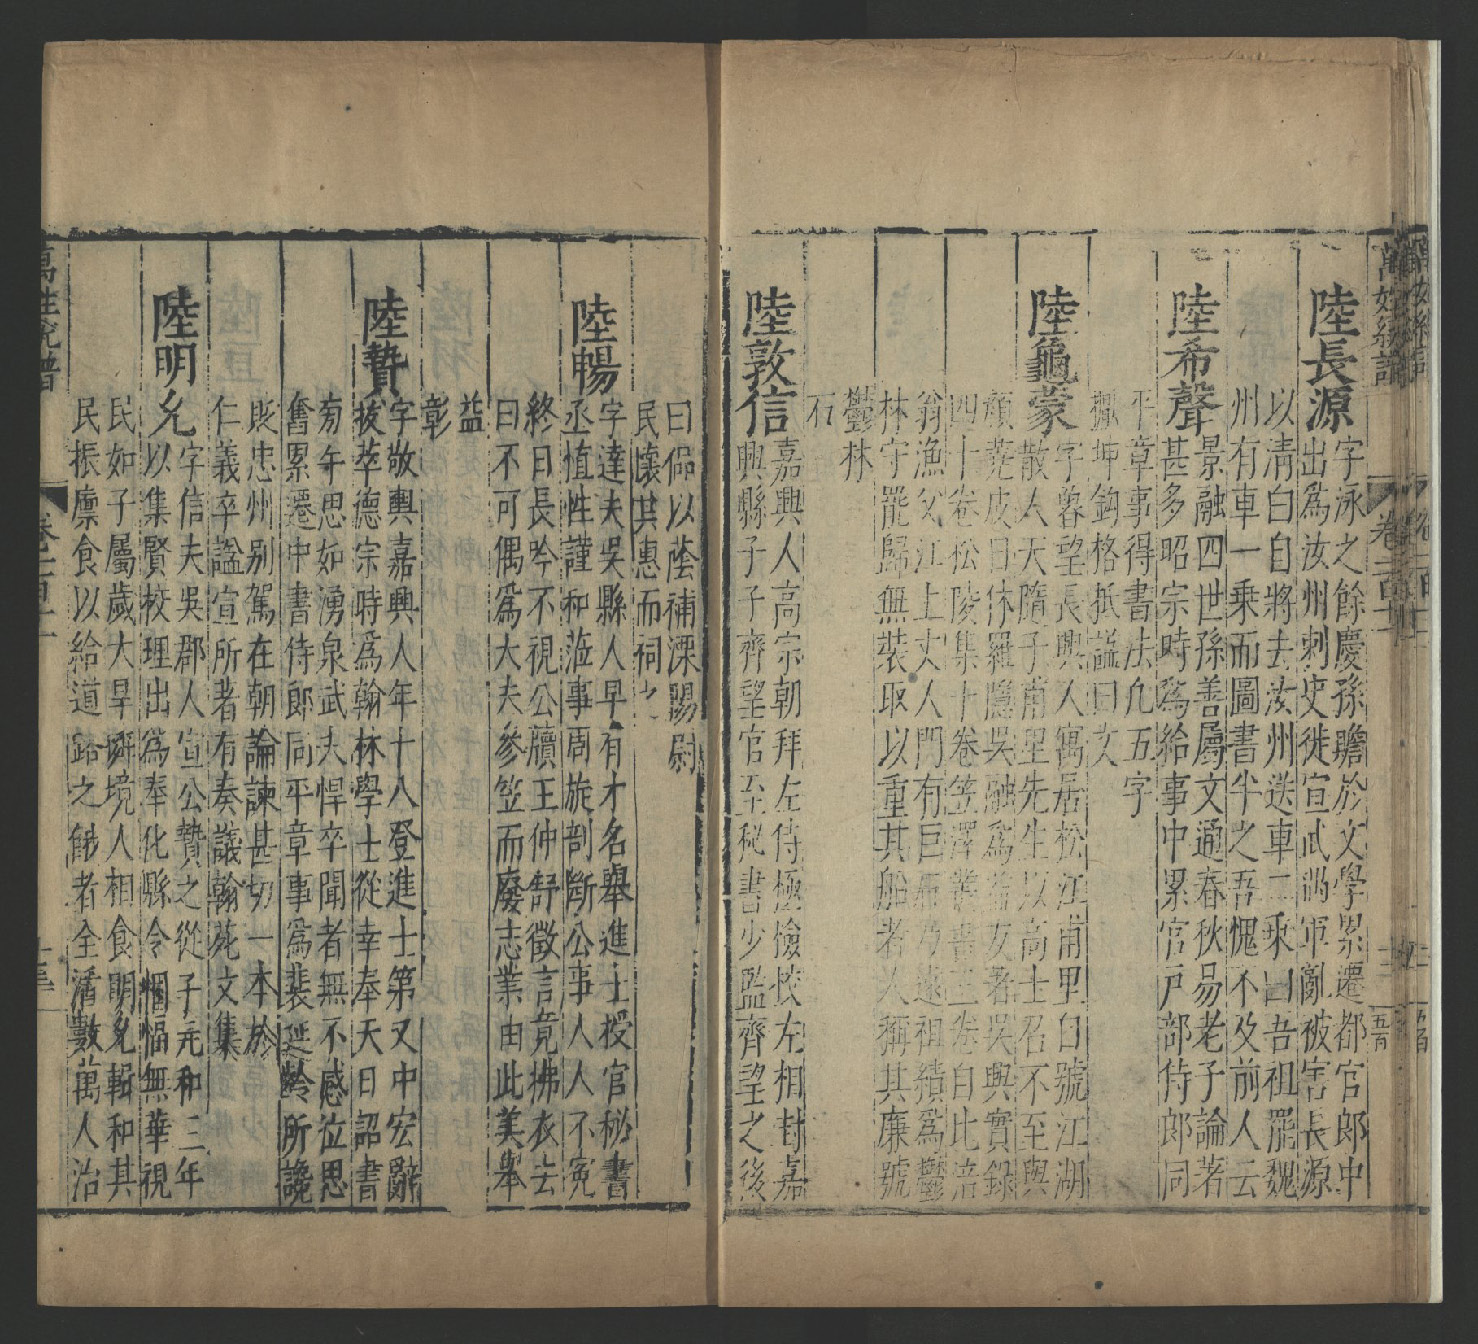 萬姓統譜
卷一百十
陸長源
字泳之餘慶孫贍於文學累遷都官郎中
出爲汝州刺史徙宣武溈軍亂被害長源
以清白自將去汝州送車二乘曰吾祖罷魏
州有車一乘而圖書半之吾愧不及前人云
陸希聲
景融四世孫善屬文通春秋易老子論著
甚多昭宗時爲給事中累官戸部侍郎同
平章事得書法凢五字
擫坤鈎格抵謚曰文
陸龜蒙
字魯望長興人寓居松江甫里自號江湖
散人天隨子甫里先生以高士召不至與
顔蕘皮日休羅隱吳融爲益友著吳興實録
四十卷松陵集十卷笠澤叢書三卷自比涪
翁漁父江上丈人門有巨石乃遠祖績爲鬱
林守罷歸無裝取以重其船者人稱其廉號
鬱林
石
陸敦信
嘉興人高宗朝拜左侍極檢校左相封嘉
興縣子子齊望官至秘書少監齊望之後
曰偘以蔭補溧陽尉
民懷其惠而祠之
陸暢
字達夫吳縣人早有才名舉進士授官秘書
丞值性謹和蒞事周旋剖斷公事人人不寃
終日長吟不視公牘王仲舒徵言竟拂衣去
曰不可偶爲大夫參笠而廢志業由此美舉
益
彰
陸贄
字敬輿嘉興人年十八登進士第又中宏辭
拔萃德宗時爲翰林學士從幸奉天日詔書
旁午思如湧泉武夫悍卒聞者無不感位思
奮累遷中書侍郎同平章事爲裴延齡所讒
貶忠州别駕在朝論諫甚切一本於
仁義卒謚宣所者有奏議翰苑文集
陸明允
字信夫吳郡人宣公贄之從子元和三年
以集賢校理出爲奉化縣令悃愊無華視
民如子屬歲大旱鄰境人相食明允輯和其
民振廪食以給道路之餓者全活數萬人治
萬姓統譜